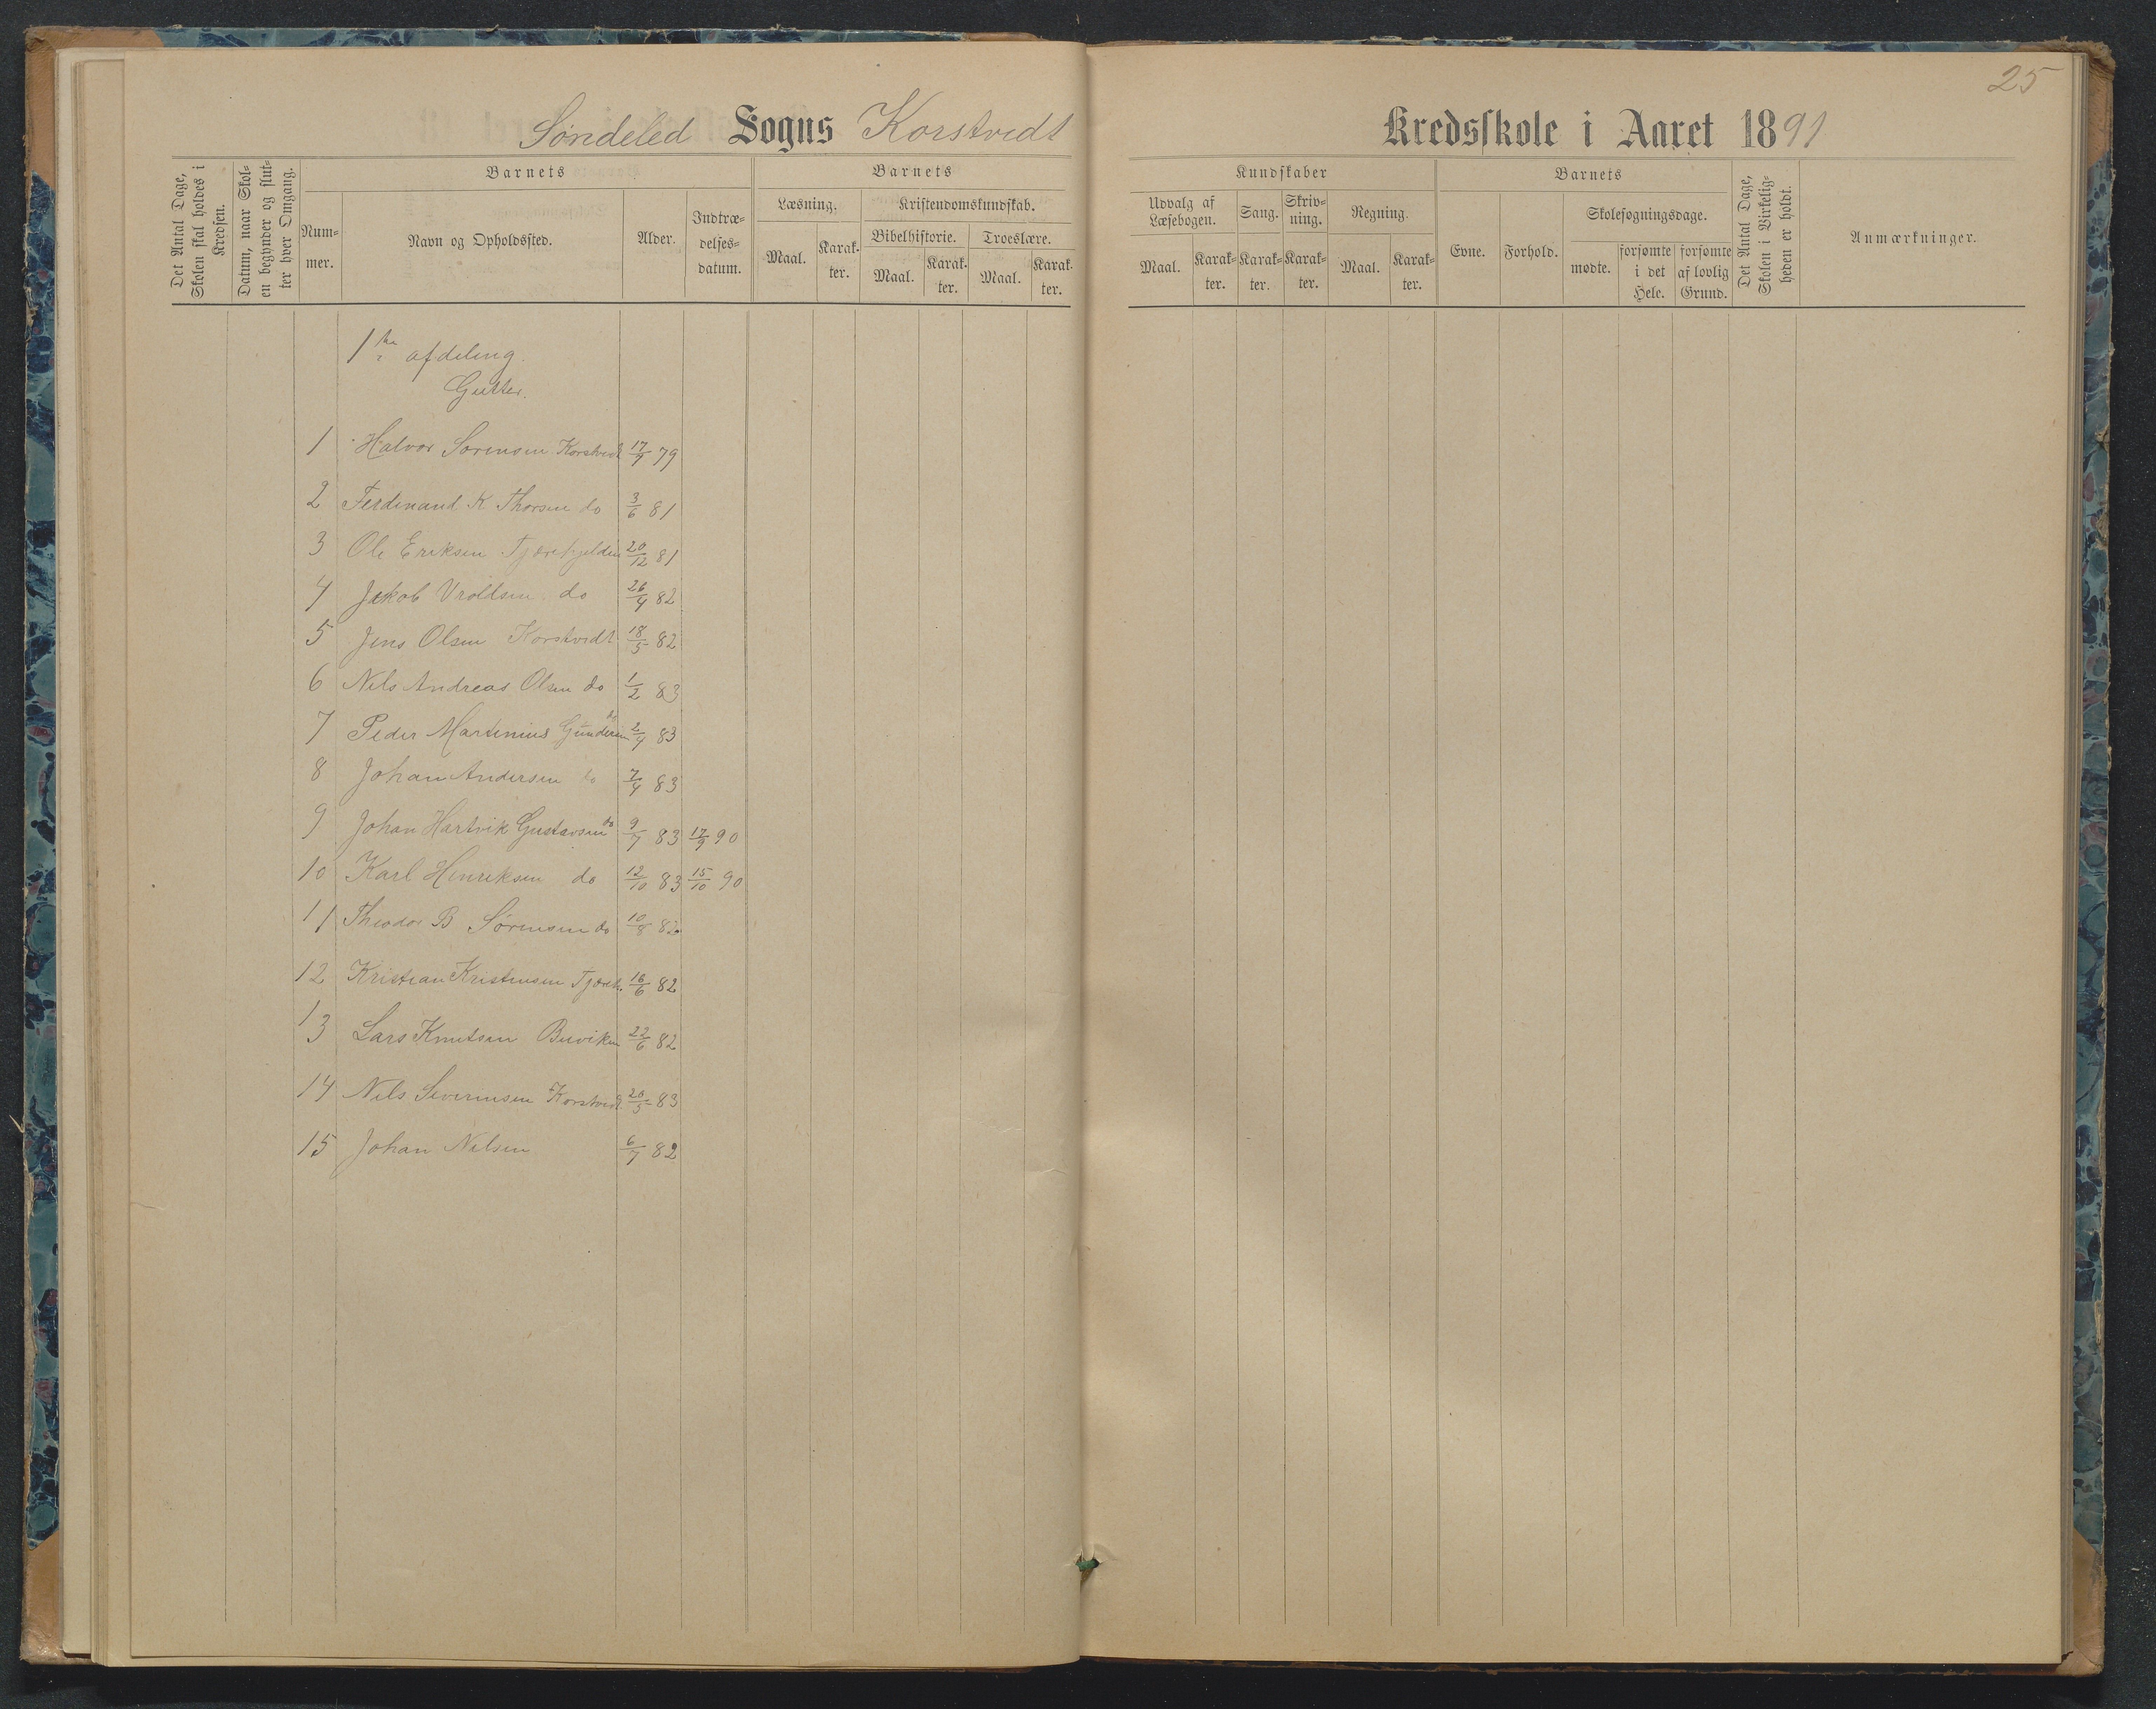 25
Søndeled Sogns Korstvedt Kredsskole i Aaret 1891
Det Antal Dage, Skolen skal holdes i Kredsen.
Datum, naar Skolen begynder og slutter hver Omgang.
Barnets
Nummer.
Navn og Opholdssted.
Alder.
Indtrædelsesdatum.
Barnets
Læsning.
Maal.
Karakter.
Kristendomskundskab.
Bibelhistorie.
Maal.
Karakter.
Troeslære.
Maal.
Karakter.
Kundskaber
Udvalg af Læsebogen.
Maal.
Karakter.
Sang.
Karakter.
Skrivning.
Karakter.
Regning.
Maal.
Karakter.
Barnets
Evne.
Forhold.
Skolesøgningsdage.
mødte.
forsømte i det Hele.
forsømte af lovlig Grund.
Det Antal Dage, Skolen i Virkeligheden er holdt.
Anmærkninger.
1ste afdeling.
Gutter.
1 Halvor Sørensen Korstvedt 17/9 79
2 Ferdinand K Thorsen do 3/6 81
3 Ole Eriksen 20/12 81
4 Jakob Vroldsen do 26/4 82
5 Jens Olsen Korstvedt 18/5 82
6 Nils Andreas Olsen do 1/2 83
7 Peder Martinius Gundersen do 2/4 83
8 Johan Andersen do 7/4 83
9 Johan Hartvik Gustavsen do 9/7 83 17/9 90
10 Karl Henriksen do 12/10 83 15/10 90
11 Theodor B Sørensen do 10/8 82
12 Kristian Kristensen Tjærek. 16/6 82
13 Lars Knutsen Buviken 22/6 82
14 Nils Severinsen Korstvedt 20/5 83
15 Johan Nilsen 6/7 82